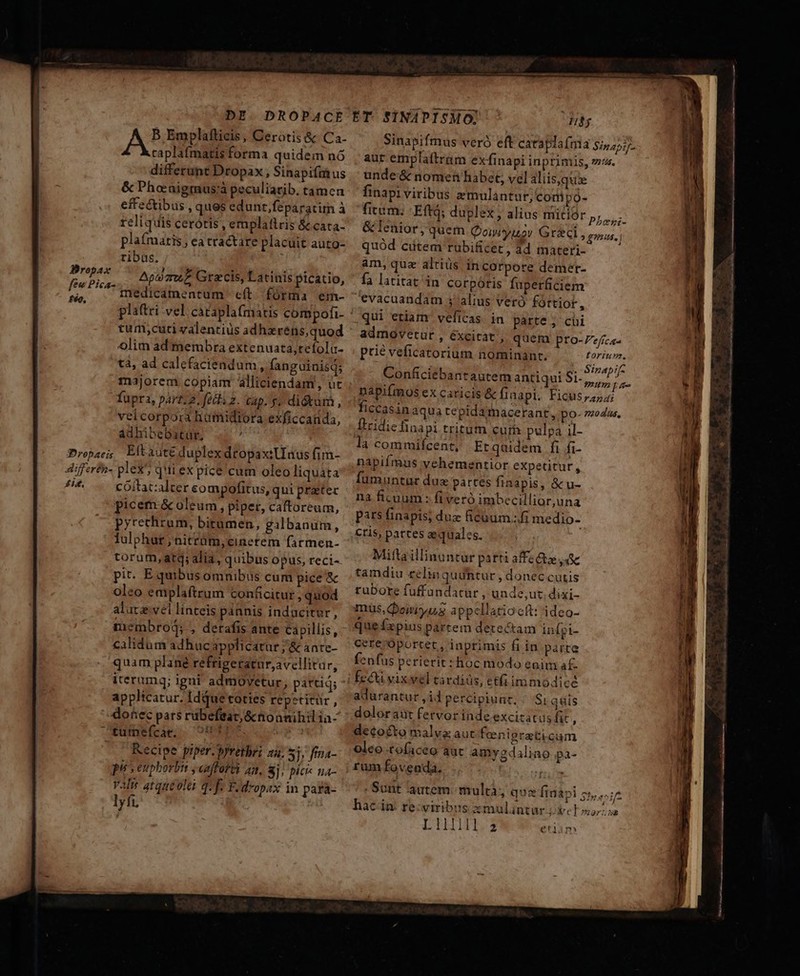 DE DROPACE ET SINAPISMO. 
AB Emplasticis, Cerotis & Ca-
taplasmatis forma quidem nō
differunt Dropax, Sinapismus
& Phœnigmus à peculiarib. tamen
effectibus, quos edunt, separatim à
reliquis cerotis, emplastris & cata-
plasmatis, ea tractare placuit auto-
ribus.
Dropax
seu Pica-
tio.
Δρώπαξ Græcis, Latinis picatio,
medicamentum est forma em-
plastri vel cataplasmatis composi-
tum, cuti valentiùs adhærens, quod
olim ad membra extenuata, resolu-
ta, ad calefaciendum, sanguinisq;
majorem copiam alliciendam, ut
supra, part. 2. sect. 2. cap. 5. dictum,
vel corpora humidiora exsiccanda,
adhibebatur.
Dropacis
differen-
tiæ.
Est autē duplex dropax: Unus sim-
plex, qui ex pice cum oleo liquata
cōstat: alter compositus, qui præter
picem & oleum, piper, castoreum,
pyrethrum, bitumen, galbanum,
sulphur, nitrum, cinerem sarmen-
torum, atq; alia, quibus opus, reci-
pit. E quibus omnibus cum pice &
oleo emplastrum conficitur, quod
alutæ vel linteis pannis inducitur,
membroq;, derasis ante capillis,
calidum adhuc applicatur, & ante-
quam planè refrigeratur, avellitur,
iterumq; igni admovetur, partiq;
applicatur. Idque toties repetitur,
donec pars rubescat, & nonnihil in-
tumescat.
Recipe piper. pyrethri an. ʒj, sina-
pis, euphorbii, castorei an. ʒj. picis na-
valis atque olei q. s. F. dropax in para-
lysi.
1185
Sinapismus verò est cataplasma
aut emplastrum ex sinapi inprimis,
unde & nomen habet, vel aliis, quæ
sinapi viribus æmulantur, compo-
situm. Estq; duplex, alius mitior
& lenior, quem φοινιγμὸν Græci,
quòd cutem rubificet, ad materi-
am, quæ altiùs in corpore demer-
sa latitat in corporis superficiem
evacuandam; alius verò fortior,
qui etiam vesicas in parte, cui
admovetur, excitat, quem pro-
priè vesicatorium nominant.
Sinapis-
mus.
Phœni-
gmus.
Vesica-
torium.
Conficiebant autem antiqui Si-
napismos ex caricis & sinapi. Ficus
siccas in aqua tepida macerant, po-
stridie sinapi tritum cum pulpa il-
la commiscent. Et quidem si si-
napismus vehementior expetitur,
sumuntur duæ partes sinapis, & u-
na ficuum: si verò imbecillior, una
pars sinapis, duæ ficuum: si medio-
cris, partes æquales.
Sinapis-
mum pa-
randi
modus.
Mista illinuntur parti affectæ, &
tamdiu relinquuntur, donec cutis
rubore suffundatur, unde, ut dixi-
mus, φοινιγμὸς appellatio est: ideo-
que sæpius partem detectam inspi-
cere oportet, inprimis si in parte
sensus perierit: hoc modo enim af-
fecti vix vel tardiùs, etsi immodicè
adurantur, id percipiunt. Si quis
dolor aut fervor inde excitatus sit,
decocto malvæ aut fœnigræci cum
oleo rosaceo aut amygdalino pa-
rum fovenda.
Sunt autem multa, quæ sinapi
hac in re viribus æmulantur, vel
Llllll 2
etiam